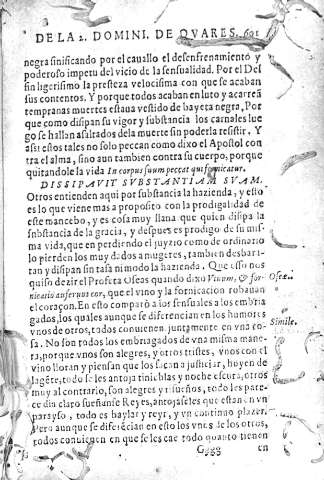 DE LA 2. DOMINI. DE QVARES. 601
negra sinificando por el cauallo el desenfrenamiẽto y
poderoso impetu del vicio de la sensualidad. Por el Del
fin ligerisimo la presteza velocisima con que se acaban
sus contentos. Y porque todos acaban en luto y acarreã
tempranas muertes estaua vestido de bayeta negra, Por
que como disipan su vigor y substancia los carnales lue
go se hallan asaltados dela muerte sin poderla resistir, Y
assi estos tales no solo peccan como dixo el Apostol con
tra el alma, sino aun tambien contra su cuerpo, porque
quitandole la vida In corpus suum peccat qui fornicatur.
DISSIPAVIT SVBSTANTIAM SVAM.
Otros entienden aqui por substancia la hazienda, y esto
es lo que viene mas a proposito con la prodigalidad de
este mancebo, y es cosa muy llana que quien disipa la
substancia de la gracia, y despues es prodigo de su mis
ma vida, que en perdiendo el juyzio como de ordinario
lo pierden los muy dados a mugeres, tambien desbarã
tan y disipan sin tasa ni modo la hazienda. Que esso nos
quiso dezir el Profeta Oseas quando dixo Vinum, & for- Oseæ.
nicatio auferunt cor, que el vino y la fornicacion robauan
el coraçon. En esto comparò a los sensuales a los embria
gados, los quales aunque se diferencian en los humores
vnos de otros, todos conuienen juntamente en vna co- Simile.
sa. No son todos los embriagados de vna misma mane-
ra, porque vnos son alegres, y otros tristes, vnos con el
vino lloran y piensan que los sacan a justiciar, huyen de
la gẽte, todo se les antoja tinieblas y noche escura, otros
muy al contrario, son alegres y risueños, todo les pare-
ce dia claro sueñanse Reyes, antojaseles que estan en vn
parayso, todo es baylar y reyr, y vn continuo plazer.
Pero aunque se diferẽcian en esto los vnos de los otros,
todos conuienen en que se les cae todo quanto tienen
Gggg en